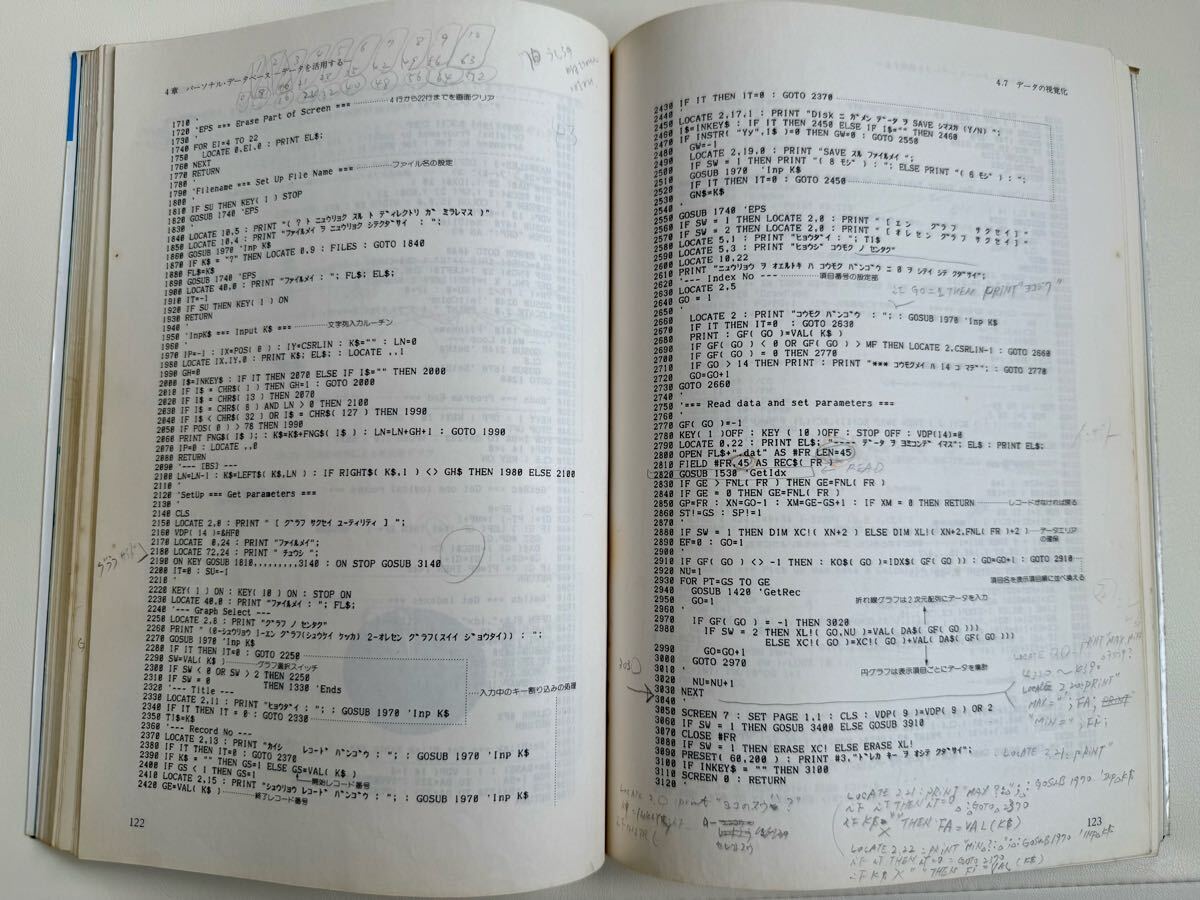 4章 パーソナル・データベース ―データを活用する―
1710 '
1720 'EPS === Erase Part of Screen === 4行から22行までを画面クリア
1730 '
1740 FOR EI=4 TO 22
1750 LOCATE 0,EI,0 : PRINT EL$;
1760 NEXT
1770 RETURN
1780 '
1790 'Filename === Set Up File Name === ファイル名の設定
1800 '
1810 IF SU THEN KEY( 1 ) STOP
1820 GOSUB 1740 'EPS
1830 '
1840 LOCATE 10,5 : PRINT "( ? ト ニュウリョク スル ト ディレクトリ ガ ミラレマス )"
1850 LOCATE 10,4 : PRINT "ファイルメイ ヲ ニュウリョク シテクダサイ : ";
1860 GOSUB 1970 'Inp K$
1870 IF K$ = "?" THEN LOCATE 0,9 : FILES : GOTO 1840
1880 FL$=K$
1890 GOSUB 1740 'EPS
1900 LOCATE 40,0 : PRINT "ファイルメイ : "; FL$; EL$;
1910 IT=-1
1920 IF SU THEN KEY( 1 ) ON
1930 RETURN
1940 '
1950 'InpK$ === Input K$ === 文字列入力ルーチン
1960 '
1970 IP=-1 : IX=POS( 0 ) : IY=CSRLIN : K$="" : LN=0
1980 LOCATE IX,IY,0 : PRINT K$; EL$; : LOCATE ,,1
1990 GH=0
2000 I$=INKEY$ : IF IT THEN 2070 ELSE IF I$="" THEN 2000
2010 IF I$ = CHR$( 1 ) THEN GH=1 : GOTO 2000
2020 IF I$ = CHR$( 13 ) THEN 2070
2030 IF I$ = CHR$( 8 ) AND LN > 0 THEN 2100
2040 IF I$ < CHR$( 32 ) OR I$ = CHR$( 127 ) THEN 1990
2050 IF POS( 0 ) > 78 THEN 1990
2060 PRINT FNG$( I$ ); : K$=K$+FNG$( I$ ) : LN=LN+GH+1 : GOTO 1990
2070 IP=0 : LOCATE ,,0
2080 RETURN
2090 '--- [BS] ---
2100 LN=LN-1 : K$=LEFT$( K$,LN ) : IF RIGHT$( K$,1 ) <> GH$ THEN 1980 ELSE 2100
2110 '
2120 'SetUp === Get parameters ===
2130 '
2140 CLS
2150 LOCATE 2,0 : PRINT " [ グラフ サクセイ ユーティリティ ] ";
2160 VDP( 14 )=&HF0
2170 LOCATE 0,24 : PRINT "ファイルメイ";
2180 LOCATE 72,24 : PRINT " チュウシ ";
2190 ON KEY GOSUB 1810,,,,,,,,,3140 : ON STOP GOSUB 3140
2200 IT=0 : SU=-1
2210 '
2220 KEY( 1 ) ON : KEY( 10 ) ON : STOP ON
2230 LOCATE 40,0 : PRINT "ファイルメイ : "; FL$;
2240 '--- Graph Select ---
2250 LOCATE 2,8 : PRINT "グラフ ノ センタク"
2260 PRINT " (0-シュウリョウ 1-エン グラフ(シュウケイ ケッカ) 2-オレセン グラフ(スイイ ジョウタイ)) : ";
2270 GOSUB 1970 'Inp K$
2280 IF IT THEN IT=0 : GOTO 2250
2290 SW=VAL( K$ ) グラフ選択スイッチ
2300 IF SW < 0 OR SW > 2 THEN 2250
2310 IF SW = 0 THEN 1330 'Ends
2320 '--- Title --- 入力中のキー割り込みの処理
2330 LOCATE 2,11 : PRINT "ヒョウダイ : "; : GOSUB 1970 'Inp K$
2340 IF IT THEN IT = 0 : GOTO 2330
2350 TI$=K$
2360 '--- Record No ---
2370 LOCATE 2,13 : PRINT "カイシ レコード バンゴウ : "; : GOSUB 1970 'Inp K$
2380 IF IT THEN IT=0 : GOTO 2370
2390 IF K$ = "" THEN GS=1 ELSE GS=VAL( K$ )
2400 IF GS < 1 THEN GS=1 開始レコード番号
2410 LOCATE 2,15 : PRINT "シュウリョウ レコード バンゴウ : "; : GOSUB 1970 'Inp K$
2420 GE=VAL( K$ ) 終了レコード番号
122
4.7 データの視覚化
2430 IF IT THEN IT=0 : GOTO 2370
2440 '
2450 LOCATE 2,17,1 : PRINT "Disk ニ ガメン データ ヲ SAVE シマスカ (Y/N) ";
2460 I$=INKEY$ : IF IT THEN 2450 ELSE IF I$="" THEN 2460
2470 IF INSTR( "Yy",I$ )=0 THEN GW=0 : GOTO 2550
2480 GW=-1
2490 LOCATE 2,19,0 : PRINT "SAVE スル ファイルメイ ";
2500 IF SW = 1 THEN PRINT "( 8 モジ ) : "; ELSE PRINT "( 6 モジ ) : ";
2510 GOSUB 1970 'Inp K$
2520 IF IT THEN IT=0 : GOTO 2450
2530 GN$=K$
2540 '
2550 GOSUB 1740 'EPS
2560 IF SW = 1 THEN LOCATE 2,0 : PRINT " [ エン グラフ サクセイ ] "
2570 IF SW = 2 THEN LOCATE 2,0 : PRINT " [ オレセン グラフ サクセイ ] "
2580 LOCATE 5,1 : PRINT "ヒョウダイ : "; TI$
2590 LOCATE 5,3 : PRINT "ヒョウジ コウモク ノ センタク"
2600 LOCATE 10,22
2610 PRINT "ニュウリョウ ヲ オエルトキ ハ コウモク バンゴウ ニ 0 ヲ シテイ シテ クダサイ";
2620 '--- Index No --- 項目番号の設定部
2630 LOCATE 2,5
2640 GO = 1
2650 '
2660 LOCATE 2 : PRINT "コウモク バンゴウ : "; : GOSUB 1970 'Inp K$
2670 IF IT THEN IT=0 : GOTO 2630
2680 PRINT : GF( GO )=VAL( K$ )
2690 IF GF( GO ) < 0 OR GF( GO ) > MF THEN LOCATE 2,CSRLIN-1 : GOTO 2660
2700 IF GF( GO ) = 0 THEN 2770
2710 IF GO > 14 THEN PRINT : PRINT "*** コウモクメイ ハ 14 コ マデ"; : GOTO 2770
2720 GO=GO+1
2730 GOTO 2660
2740 '
2750 '=== Read data and set parameters ===
2760 '
2770 GF( GO )=-1
2780 KEY( 1 )OFF : KEY ( 10 )OFF : STOP OFF : VDP(14)=0
2790 LOCATE 0,22 : PRINT EL$; "---- データ ヲ ヨミコンデ イマス"; EL$ : PRINT EL$;
2800 OPEN FL$+".dat" AS #FR LEN=45
2810 FIELD #FR,45 AS REC$( FR )
2820 GOSUB 1530 'GetIdx
READ
2830 IF GE > FNL( FR ) THEN GE=FNL( FR )
2840 IF GE = 0 THEN GE=FNL( FR )
2850 GP=FR : XN=GO-1 : XM=GE-GS+1 : IF XM = 0 THEN RETURN レコードがなければ戻る
2860 ST!=GS : SP!=1
2870 '
2880 IF SW = 1 THEN DIM XC!( XN+2 ) ELSE DIM XL!( XN+2,FNL( FR )+2 ) データエリアの確保
2890 EF=0 : GO=1
2900 '
2910 IF GF( GO ) <> -1 THEN : KO$( GO )=IDX$( GF( GO )) : GO=GO+1 : GOTO 2910
2920 NU=1 項目名を表示項目順に並べ換える
2930 FOR PT=GS TO GE
2940 GOSUB 1420 'GetRec
2950 GO=1 折れ線グラフは2次元配列にデータを入力
2960 '
2970 IF GF( GO ) = -1 THEN 3020
2980 IF SW = 2 THEN XL!( GO,NU )=VAL( DA$( GF( GO )))
ELSE XC!( GO )=XC!( GO )+VAL( DA$( GF( GO )))
2990 GO=GO+1
3000 GOTO 2970 円グラフは表示項目ごとにデータを集計
3010 '
3020 NU=NU+1
3030 NEXT
3040 '
3050 SCREEN 7 : SET PAGE 1,1 : CLS : VDP( 9 )=VDP( 9 ) OR 2
3060 IF SW = 1 THEN GOSUB 3400 ELSE GOSUB 3910
3070 CLOSE #FR
3080 IF SW = 1 THEN ERASE XC! ELSE ERASE XL!
3090 PRESET( 60,200 ) : PRINT #3,"ドレカ キー ヲ オシテ クダサイ";
3100 IF INKEY$ = "" THEN 3100
3110 SCREEN 0 : RETURN
3120 '
LOCATE 2.21: PRINT
123